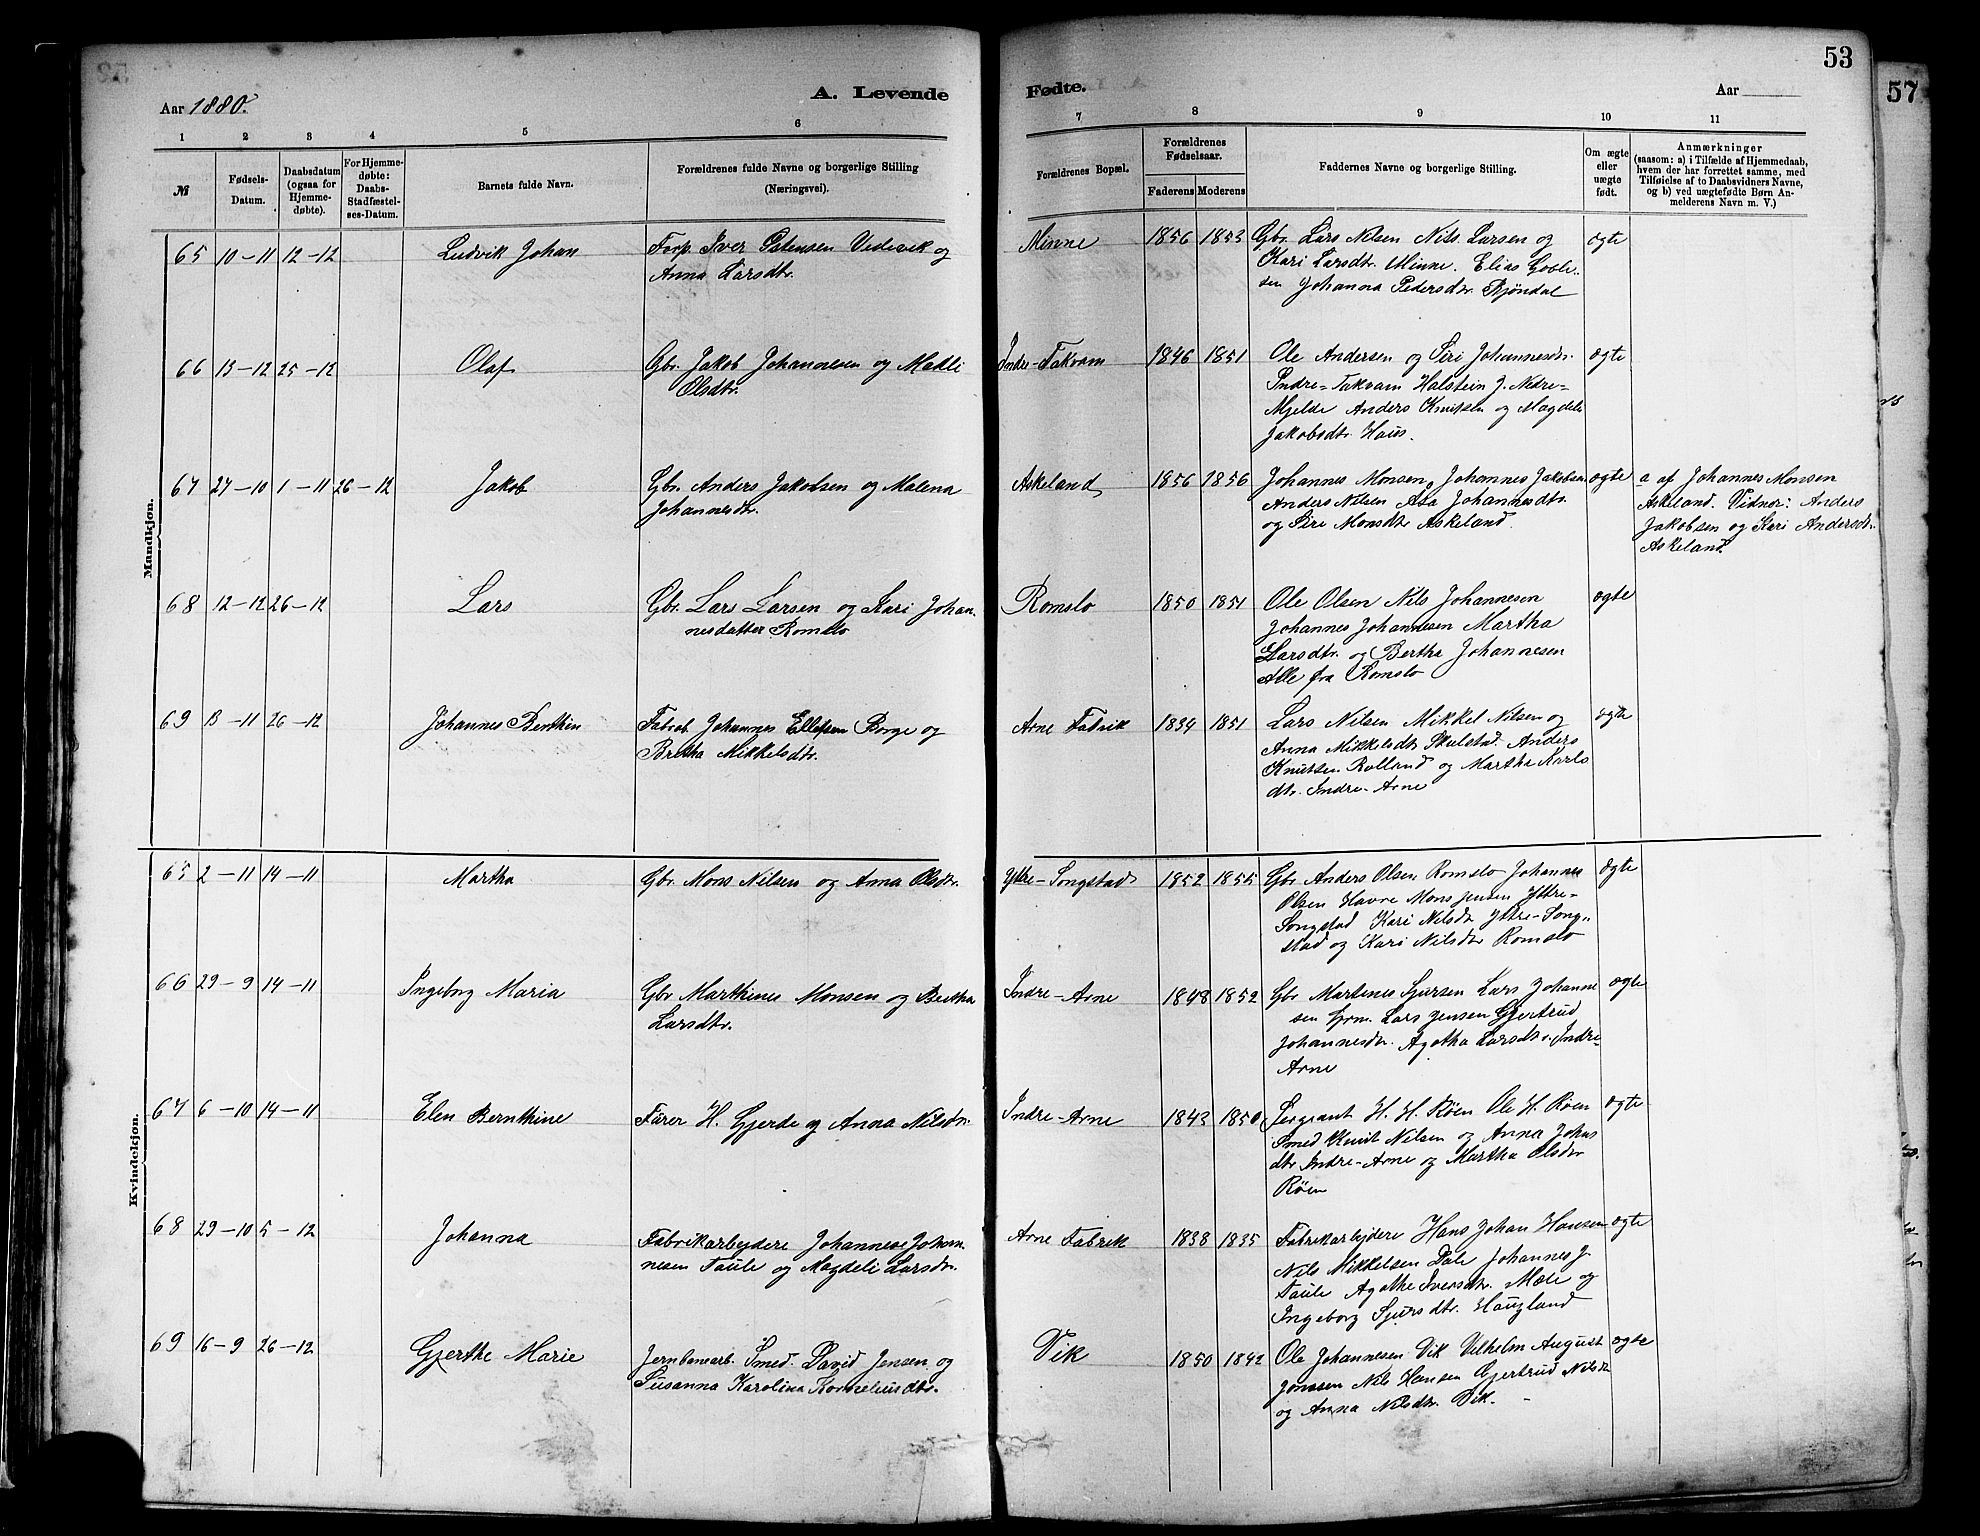 53
57
Aar 1880.
A. Levende
Fødte.
Aar
1 2 3 4 5 6 7 8 9 10 11
№
Fødsels-
Datum.
Daabsdatum
(ogsaa for
Hjemme-
døbte).
For Hjemme-
døbte:
Daabs-
Stadfæstel-
ses-Datum.
Barnets fulde Navn.
Forældrenes fulde Navne og borgerlige Stilling
(Næringsvei).
Forældrenes Bopæl.
Forældrenes
Fødselsaar.
Faderens Moderens
Faddernes Navne og borgerlige Stilling.
Om ægte
eller
uægte
født.
Anmærkninger
(saasom: a) i Tilfælde af Hjemmedaab,
hvem der har forrettet samme, med
Tilføielse af to Daabsvidners Navne,
og b) ved uægtefødte Børn An-
melderens Navn m. V.)
Mandkjøn.
65 10-11 12-12
Ludvik Johan
Forp. Iver Ostensen Vedevik og
Anna Larsdtr.
Minne
1856 1853
Gbr. Lars Nlsen Nils Larsen og
Kari Larsdtr. Minne. Elias Gocle-
sen Johanna Pedersdtr. Bjöndal
ægte
66 13-12 25-12
Olaf
Gbr. Jakob Johannesen og Madli
Olsdtr.
Indre-Takvam
1846 1851
Ole Andersen og Siri Johannesdtr.
Indre-Takvam Halstein J. Nedre-
Mjelde Anders Knutsen og Magdeli
Jakobsdtr. Haus.
ægte
67 27-10 1-11 26-12
Jakob
Gbr. Anders Jakobsen og Malena
Johannesdtr.
Askeland
1856 1856
Johannes Monsen, Johannes Jakobsen
Anders Nilsen Asa Johannesdtr.
og Sire Monsdtr Askeland.
ægte
a af Johannes Monsen
Askeland. Vidner: Anders
Jakobsen og Kari Andersdtr.
Askeland.
68 12-12 26-12
Lars
Gbr. Lars Larsen og Kari Johan-
nesdatter Romslo
Romslo
1850 1851
Ole Olsen Nils Johannesen
Johannes Johannesen Martha
Larsdtr. og Bertha Johannesen
Alle fra Romslo
ægte
69 13-11 26-12
Johannes Berthin
Fabrob. Johannes Ellefsen Borge og
Bretha Mikkelsdtr.
Arne Fabrik
1834 1851
Lars Nilsen Mikkel Nilsen og
Anna Mikkelsdtr Skulstad. Anders
Knutsen Rolland og Martha Karls
dtr. Indre-Arne
ægte
Kvindekjøn.
65 2-11 14-11
Martha
Gbr. Mons Nilsen og Anna Olsdtr.
Ytre-Songstad
1852 1855
Gbr Anders Olsen Romslo Johannes
Olsen Havre Mons Jensen Yttre-
Songstad Kari Nilsdtr Yttre-Song-
stad og Kari Nilsdtr Romslo
ægte
66 29-9 14-11
Ingeborg Maria
Gbr Marthines Monsen og Bertha
Larsdtr.
Indre-Arne
1848 1852
Gbr Martines Sjursen Lars Johanne
sen Grm. Lars Jensen Gjertrud
Johannesdtr. Agotha Larsdtr. Indre-
Arne
ægte
67 6-10 14-11
Elen Bernthine
Farer H. Gjerde og Anna Nilsdtr.
Indre-Arne
1843 1850
Sergeant H. H. Røen Ole H. Røen
Smed Knut Nilsen og Anna Johns
dtr Indre-Arne og Martha Olsdtr
Røen
ægte
68 29-10 5-12
Johanna
Fabrikarbejdere Johannes Johan-
nesen Taule og Magdeli Larsdtr.
Arne Fabrik
1838 1835
Fabrikarbejdere Hans Johan Hansen
Nils Mikkelsen Dale Johannes J.
Taule Agathe Iversdtr. Mæle og
Ingeborg Sjursdtr. Haugland
ægte
69 16-9 26-12
Gjerthe Marie
Jernbanearb. Smed. David Jensen og
Susanna Karolina Korneliusdtr.
Vik
1850 1842
Ole Johannesen Vik Vilhelm August
Jonssen Nils Hansen Gjertrud Nilsdtr
og Anna Nilsdtr. Vik.
ægte